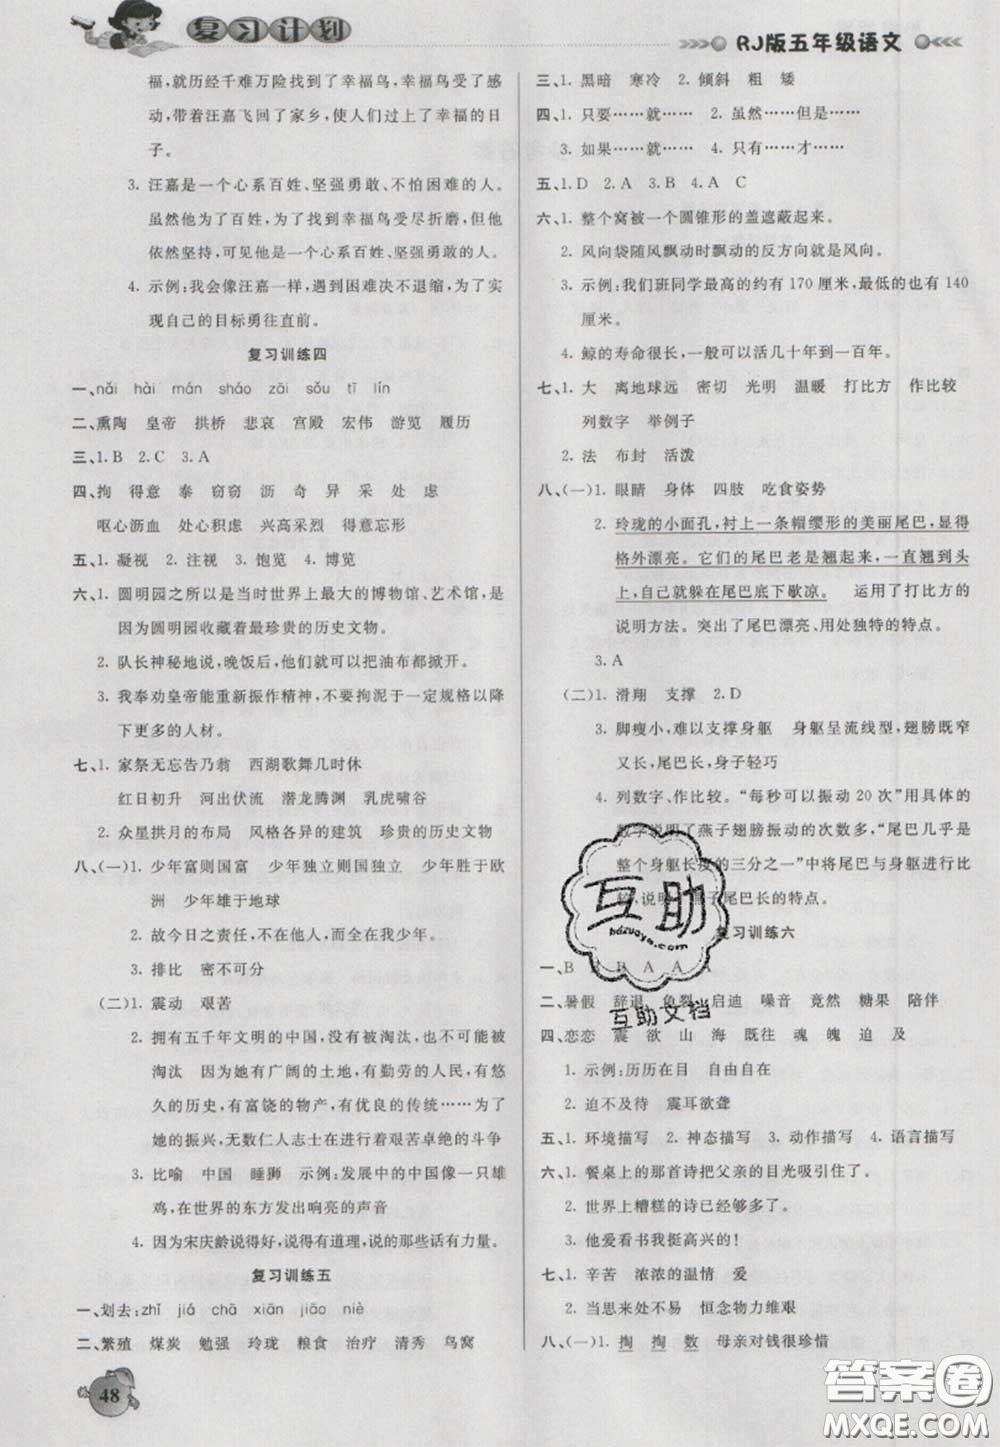 复习计划
RJ版五年级语文
福,就历经千难万险找到了幸福鸟,幸福鸟受了感
动,带着汪嘉飞回了家乡,使人们过上了幸福的日
子。
3. 汪嘉是一个心系百姓、坚强勇敢、不怕困难的人。
虽然他为了百姓,为了找到幸福鸟受尽折磨,但他
依然坚持,可见他是一个心系百姓、坚强勇敢的人。
4. 示例:我会像汪嘉一样,遇到困难决不退缩,为了实
现自己的目标勇往直前。
复习训练四
一、nǎi hài mán sháo zāi sǒu tī lín
二、熏陶 皇帝 拱桥 悲哀 宫殿 宏伟 游览 履历
三、1. B 2. C 3. A
四、拘 得意 泰 窃窃 沥 奇 异 采 处 虑
呕心沥血 处心积虑 兴高采烈 得意忘形
五、1. 凝视 2. 注视 3. 饱览 4. 博览
六、1. 圆明园之所以是当时世界上最大的博物馆、艺术馆,是
因为圆明园收藏着最珍贵的历史文物。
2. 队长神秘地说,晚饭后,他们就可以把油布都掀开。
3. 我奉劝皇帝能重新振作精神,不要拘泥于一定规格以降
下更多的人材。
七、1. 家祭无忘告乃翁 西湖歌舞几时休
红日初升 河出伏流 潜龙腾渊 乳虎啸谷
2. 众星拱月的布局 风格各异的建筑 珍贵的历史文物
八、(一)1. 少年富则国富 少年独立则国独立 少年胜于欧
洲 少年雄于地球
2. 故今日之责任,不在他人,而全在我少年。
3. 排比 密不可分
(二)1. 震动 艰苦
2. 拥有五千年文明的中国,没有被淘汰,也不可能被
淘汰 因为她有广阔的土地,有勤劳的人民,有悠
久的历史,有富饶的物产,有优秀的传统……为了
她的振兴,无数仁人志士在进行着艰苦卓绝的斗争
3. 比喻 中国 睡狮 示例:改革中的中国像一只雄
鸡,在世界的东方发出响亮的声音
4. 因为宋庆龄说得好,说得有道理,说的充满力量。
复习训练五
一、划去:zhǐ jiá chā xiān jiāo niè
二、繁殖 煤炭 勉强 玲珑 粮食 治疗 清秀 鸟窝
48
三、1. 黑暗 寒冷 2. 倾斜 粗 矮
四、1. 只要……就…… 2. 虽然……但是……
3. 如果……就…… 4. 只有……才……
五、1. D 2. A 3. B 4. A C
六、1. 整个窝被一个圆锥形的盖遮蔽起来。
2. 风向袋随风飘动时飘动的反方向就是风向。
3. 示例:我们班同学最高的约有170厘米,最低的也有140
厘米。
4. 鲸的寿命很长,一般可以活几十年到一百年。
七、1. 大 离地球远 密切 光明 温暖 打比方 作比较
列数字 举例子
2. 法 布封 活泼
八、(一)1. 眼睛 身体 四肢 吃食姿势
2. 玲珑的小面孔,衬上一条帽缨形的美丽尾巴,显得
格外漂亮。它们的尾巴老是翘起来,一直翘到头
上,自己就躲在尾巴底下歇凉。 运用了打比方的
说明方法。突出了尾巴漂亮、用处独特的特点。
3. A
(二)1. 滑翔 支撑 2. D
3. 脚瘦小,难以支撑身躯 身躯呈流线型,翅膀既窄
又长,尾巴长,身子轻巧
4. 列数字、作比较。“每秒可以振动20次”用具体的
数字说明了燕子翅膀振动的次数多,“尾巴几乎是
整个身躯长度的三分之一”中将尾巴与身躯进行比
较,说明了尾巴长的特点。
复习训练六
一、B B A A A
二、暑假 辞退 龟裂 启迪 噪音 竟然 糖果 陪伴
四、恋恋 震 欲 山 海 既往 魂 魄 迫 及
1. 示例:历历在目 自由自在
2. 迫不及待 震耳欲聋
五、1. 环境描写 2. 神态描写 3. 动作描写 4. 语言描写
六、1. 餐桌上的那首诗把父亲的目光吸引住了。
2. 世界上糟糕的诗已经够多了。
3. 他爱看书我挺高兴的!
七、1. 辛苦 浓浓的温情 爱
2. 当思来处不易 恒念物力维艰
八、(一)1. 掏 掏 数 母亲对钱很珍惜
互助
hdzuoye.com
互助文档
答案圈
MXQE.COM